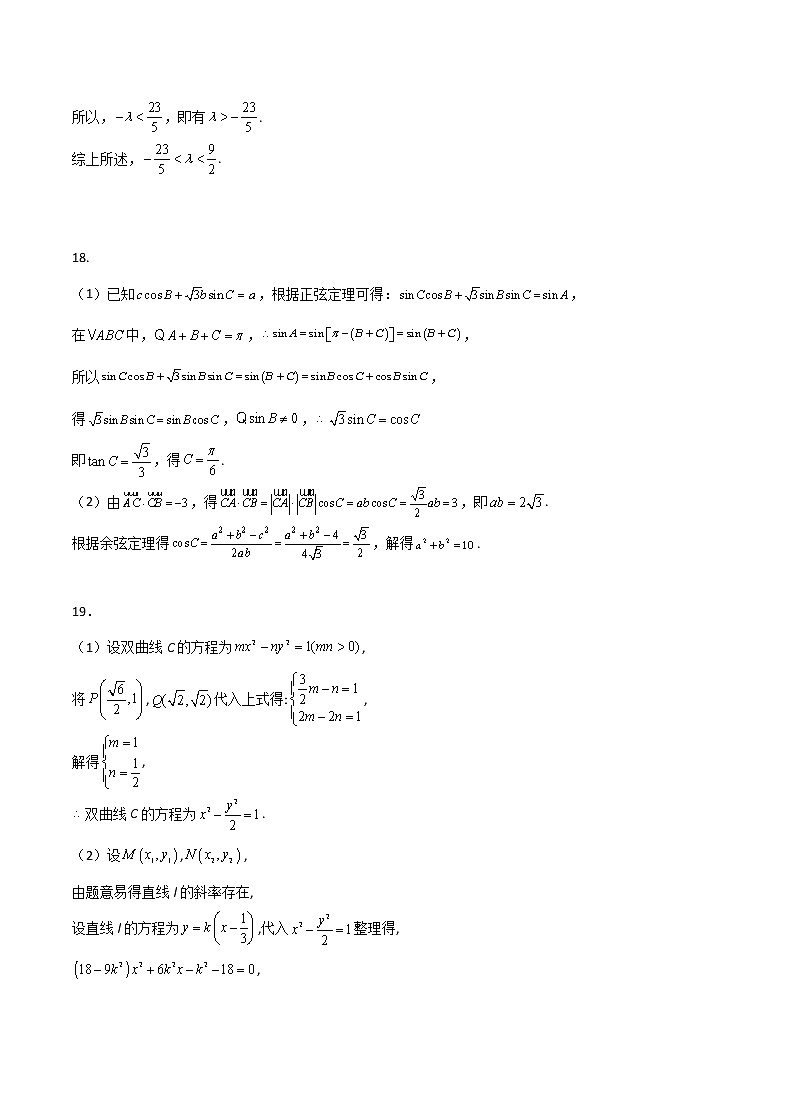 所以，-λ < 23/5，即有 λ > -23/5.
综上所述，-23/5 < λ < 9/2.
18.
（1）已知 c cos B + √3 b sin C = a，根据正弦定理可得：sin C cos B + √3 sin B sin C = sin A，
在 VABC 中，Q A + B + C = π，∴ sin A = sin[π - (B + C)] = sin(B + C)，
所以 sin C cos B + √3 sin B sin C = sin(B + C) = sin B cos C + cos B sin C，
得 √3 sin B sin C = sin B cos C，Q sin B ≠ 0，∴ √3 sin C = cos C
即 tan C = √3/3，得 C = π/6.
（2）由 AC · CB = -3，得 CA · CB = |CA| · |CB| cos C = ab cos C = √3/2 ab = 3，即 ab = 2√3.
根据余弦定理得 cos C = (a² + b² - c²)/2ab = (a² + b² - 4)/4√3 = √3/2，解得 a² + b² = 10.
19.
（1）设双曲线 C 的方程为 mx² - ny² = 1(mn > 0),
将 P(√6/2, 1), Q(√2, √2) 代入上式得: { 3/2 m - n = 1, 2m - 2n = 1 ,
解得 { m = 1, n = 1/2 ,
∴ 双曲线 C 的方程为 x² - y²/2 = 1.
（2）设 M(x₁, y₁), N(x₂, y₂),
由题意易得直线 l 的斜率存在,
设直线 l 的方程为 y = k(x - 1/3),代入 x² - y²/2 = 1 整理得,
(18 - 9k²)x² + 6k²x - k² - 18 = 0,